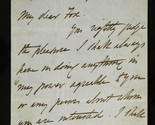 My dear Fox
You rightly judge
the pleasure I shall always
have in doing anything in
my power agreeable to you
or any person about whom
you are interested. I shall